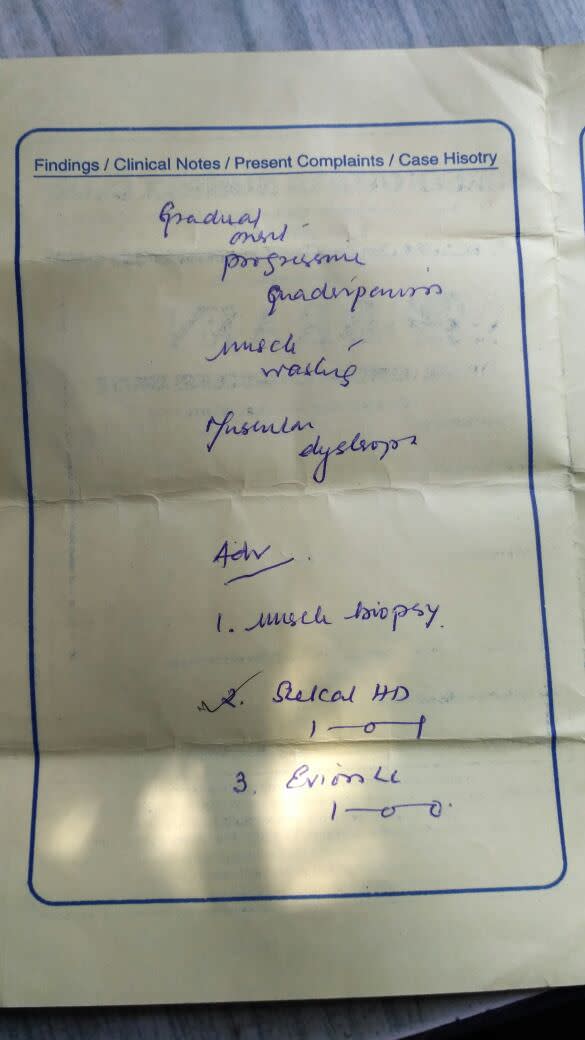 Findings / Clinical Notes / Present Complaints / Case Hisotry
Gradual
onset
progressive
quadriparesis
muscle
wasting
Muscular
dystrophy
Adv
1. muscle biopsy.
2. Shelcal HD
1 — 0 — 1
3. Evion LC
1 — 0 — 0